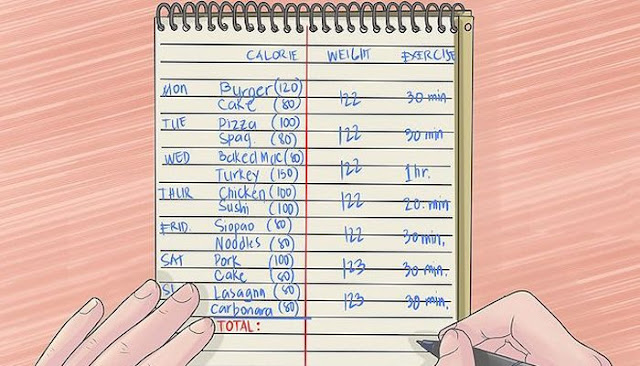 CALORIE WEIGHT EXERCISE
MON Burger (120)
Cake (80) 122 30 min
TUE Pizza (100)
Spag. (80) 122 30 min
WED Baked Mac (80)
Turkey (150) 122 1 hr.
THUR Chicken (100)
Sushi (100) 122 20. min
FRID. Siopao (80)
Noddles (80) 122 30 min.
SAT Pork (100)
Cake (80) 123 30 min.
Lasagna (80)
Carbonara (80) 123 30 min.
TOTAL: